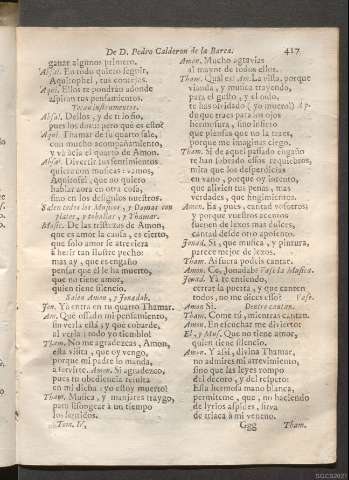 De D. Pedro Calderon de la Barca. 417
ganar algunos primero.
Absal. En todo quiero seguir,
Aquitophel, tus consejos.
Aqui. Ellos te pondran adonde
aspiran tus pensamientos.
Tocan instrumentos.
Absal. Dellos, y de ti lo fio,
pues los dos; pero que es esto?
Aqui. Thamar de su quarto sale,
con mucho acompañamiento,
y va àzia el quarto de Amon.
Absal. Divertir sus sentimientos
quiere con musicas: vamos,
Aquitofel, que no quiero
hablar aora en otra cosa,
sino en los designios nuestros.
Salen todos los Musicos, y Damas con
platos, y tohallas, y Thamar.
Music. De las tristezas de Amon,
que es amor la causa, es cierto,
que solo amor se atreviera
à herir tan ilustre pecho:
mas ay, que es engaño
pensar que èl le ha muerto,
que no tiene amor,
quien tiene silencio.
Salen Amon, y Jonadab.
Jon. Ya entra en tu quarto Thamar.
Am. Què osado mi pensamiento,
sin verla està; y que cobarde,
al verla! todo yo tiemblo!
Tham. No me agradezcas, Amon,
esta visita, que oy vengo,
porque mi padre lo manda,
à servirte. Amon. Si agradezco,
pues tu obediencia resulta
en mi dicha: yo estoy muerto!
Tham. Musica, y manjares traygo,
para lisongear à un tiempo
los sentidos.
Tom. IV.
Amon. Mucho agravias
al mayor de todos ellos.
Tham. Qual es? Am. La vista, porque
vianda, y musica trayendo,
para el gusto, y el oido,
te has olvidado (yo muero!) Ap.
de que traes para los ojos
hermosura, sino infiero
que piensas que no la traes,
porque me imaginas ciego.
Tham. Si de aquel passado engaño
te han sobrado essos requiebros,
mira que los desperdicias
en vano, porque oy intento,
que alivien tus penas, mas
verdades, que fingimientos.
Amon. Ea, pues, cantad vosotros;
y porque vuestros acentos
suenen de lexos mas dulces,
cantad desde otro aposento.
Jonad. Si, que musica, y pintura,
parece mejor de lexos.
Tham. Assuera podeis cantar.
Amon. Ce, Jonadab? Vase la Musica.
Jonad. Ya te entiendo,
cerrar la puerta, y que canten
todos, no me dices esso? Vase.
Amon Si. Dentro cantan.
Tham. Come tù, mientras cantan.
Amon. En escuchar me divierto:
El, y Musi. Que no tiene amor,
quien tiene silencio.
Amon. Y assi, divina Thamar,
no admires mi atrevimiento,
sino que las leyes rompo
del decoro, y del respeto:
Essa hermosa mano blanca,
permiteme, que, no haciendo
de lyrios aspides, sirva
de triaca à mi veneno.
Ggg Tham.